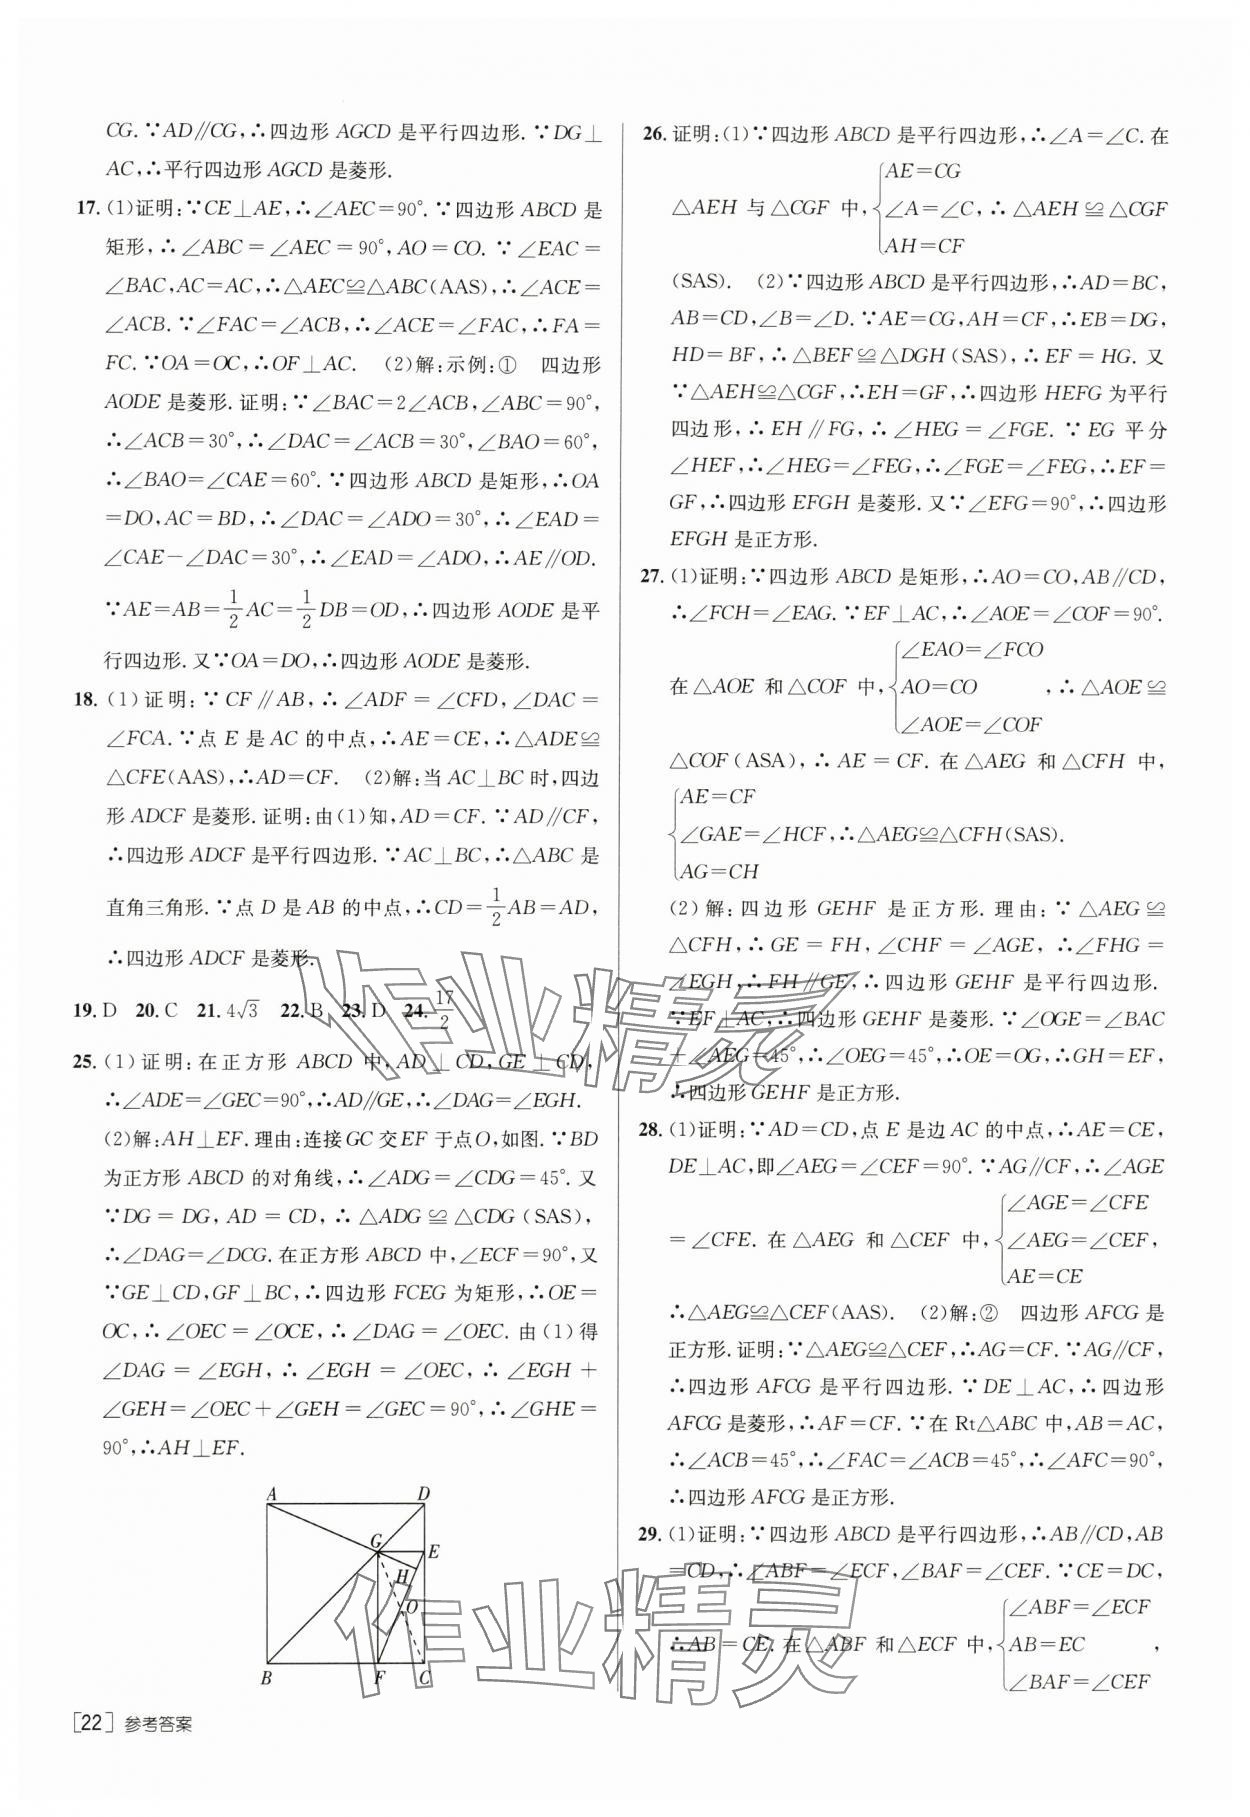 CG.∵AD∥CG,∴四边形 AGCD 是平行四边形.∵DG⊥
AC,∴平行四边形 AGCD 是菱形.
17. (1)证明:∵CE⊥AE,∴∠AEC=90°.∵四边形 ABCD 是
矩形,∴∠ABC=∠AEC=90°,AO=CO.∵∠EAC=
∠BAC,AC=AC,∴△AEC≌△ABC(AAS),∴∠ACE=
∠ACB.∵∠FAC=∠ACB,∴∠ACE=∠FAC,∴FA=
FC.∵OA=OC,∴OF⊥AC. (2)解:示例:① 四边形
AODE 是菱形.证明:∵∠BAC=2∠ACB,∠ABC=90°,
∴∠ACB=30°,∴∠DAC=∠ACB=30°,∠BAO=60°,
∴∠BAO=∠CAE=60°.∵四边形 ABCD 是矩形,∴OA
=DO,AC=BD,∴∠DAC=∠ADO=30°,∴∠EAD=
∠CAE-∠DAC=30°,∴∠EAD=∠ADO,∴AE∥OD.
∵AE=AB=1/2AC=1/2DB=OD,∴四边形 AODE 是平
行四边形.又∵OA=DO,∴四边形 AODE 是菱形.
18. (1)证明:∵CF∥AB,∴∠ADF=∠CFD,∠DAC=
∠FCA.∵点 E 是 AC 的中点,∴AE=CE,∴△ADE≌
△CFE(AAS),∴AD=CF. (2)解:当 AC⊥BC 时,四边
形 ADCF 是菱形.证明:由(1)知,AD=CF.∵AD∥CF,
∴四边形 ADCF 是平行四边形.∵AC⊥BC,∴△ABC 是
直角三角形.∵点 D 是 AB 的中点,∴CD=1/2AB=AD,
∴四边形 ADCF 是菱形.
19. D 20. C 21. 4√3 22. B 23. D 24. 17/2
25. (1)证明:在正方形 ABCD 中,AD⊥CD,GE⊥CD,
∴∠ADE=∠GEC=90°,∴AD∥GE,∴∠DAG=∠EGH.
(2)解:AH⊥EF.理由:连接 GC 交 EF 于点 O,如图.∵BD
为正方形 ABCD 的对角线,∴∠ADG=∠CDG=45°.又
∵DG=DG,AD=CD,∴△ADG≌△CDG(SAS),
∴∠DAG=∠DCG.在正方形 ABCD 中,∠ECF=90°,又
∵GE⊥CD,GF⊥BC,∴四边形 FCEG 为矩形,∴OE=
OC,∴∠OEC=∠OCE,∴∠DAG=∠OEC.由(1)得
∠DAG=∠EGH,∴∠EGH=∠OEC,∴∠EGH+
∠GEH=∠OEC+∠GEH=∠GEC=90°,∴∠GHE=
90°,∴AH⊥EF.
A D
G E
H
O
B F C
[22] 参考答案
26. 证明:(1)∵四边形 ABCD 是平行四边形,∴∠A=∠C.在
AE=CG
△AEH 与△CGF 中,{∠A=∠C,∴△AEH≌△CGF
AH=CF
(SAS). (2)∵四边形 ABCD 是平行四边形,∴AD=BC,
AB=CD,∠B=∠D.∵AE=CG,AH=CF,∴EB=DG,
HD=BF,∴△BEF≌△DGH(SAS),∴EF=HG.又
∵△AEH≌△CGF,∴EH=GF,∴四边形 HEFG 为平行
四边形,∴EH∥FG,∴∠HEG=∠FGE.∵EG 平分
∠HEF,∴∠HEG=∠FEG,∴∠FGE=∠FEG,∴EF=
GF,∴四边形 EFGH 是菱形.又∵∠EFG=90°,∴四边形
EFGH 是正方形.
27. (1)证明:∵四边形 ABCD 是矩形,∴AO=CO,AB∥CD,
∴∠FCH=∠EAG.∵EF⊥AC,∴∠AOE=∠COF=90°.
∠EAO=∠FCO
在△AOE 和△COF 中,{AO=CO ,∴△AOE≌
∠AOE=∠COF
△COF(ASA),∴AE=CF.在△AEG 和△CFH 中,
AE=CF
{∠GAE=∠HCF,∴△AEG≌△CFH(SAS).
AG=CH
(2)解:四边形 GEHF 是正方形.理由:∵△AEG≌
△CFH,∴GE=FH,∠CHF=∠AGE,∴∠FHG=
∠EGH,∴FH∥GE,∴四边形 GEHF 是平行四边形.
∵EF⊥AC,∴四边形 GEHF 是菱形.∵∠OGE=∠BAC
+∠AEG=45°,∴∠OEG=45°,∴OE=OG,∴GH=EF,
∴四边形 GEHF 是正方形.
28. (1)证明:∵AD=CD,点 E 是边 AC 的中点,∴AE=CE,
DE⊥AC,即∠AEG=∠CEF=90°.∵AG∥CF,∴∠AGE
∠AGE=∠CFE
=∠CFE.在△AEG 和△CEF 中,{∠AEG=∠CEF,
AE=CE
∴△AEG≌△CEF(AAS). (2)解:② 四边形 AFCG 是
正方形.证明:∵△AEG≌△CEF,∴AG=CF.∵AG∥CF,
∴四边形 AFCG 是平行四边形.∵DE⊥AC,∴四边形
AFCG 是菱形,∴AF=CF.∵在 Rt△ABC 中,AB=AC,
∴∠ACB=45°,∴∠FAC=∠ACB=45°,∴∠AFC=90°,
∴四边形 AFCG 是正方形.
29. (1)证明:∵四边形 ABCD 是平行四边形,∴AB∥CD,AB
=CD,∴∠ABF=∠ECF,∠BAF=∠CEF.∵CE=DC,
∠ABF=∠ECF
∴AB=CE.在△ABF 和△ECF 中,{AB=EC ,
∠BAF=∠CEF
作业精灵
作业精灵